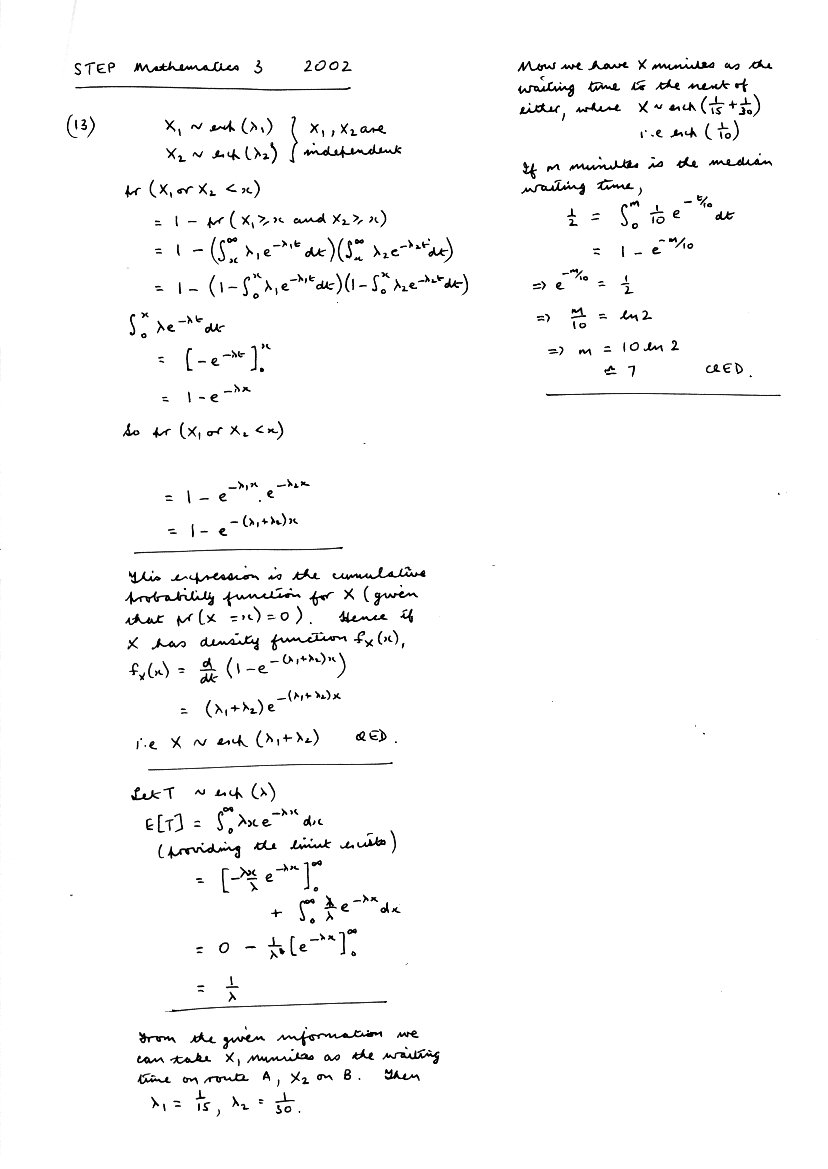 STEP Mathematics 3 2002
(13) X₁ ~ exp(λ₁) } X₁, X₂ are
X₂ ~ exp(λ₂) } independent
pr (X₁ or X₂ < x)
= 1 - pr (X₁ ≥ x and X₂ ≥ x)
= 1 - (∫ₓ^∞ λ₁e^{-λ₁t} dt)(∫ₓ^∞ λ₂e^{-λ₂t} dt)
= 1 - (1 - ∫₀^x λ₁e^{-λ₁t} dt)(1 - ∫₀^x λ₂e^{-λ₂t} dt)
∫₀^x λe^{-λt} dt
= [-e^{-λt}]₀^x
= 1 - e^{-λx}
So pr (X₁ or X₂ < x)
= 1 - e^{-λ₁x} . e^{-λ₂x}
= 1 - e^{-(λ₁+λ₂)x}
This expression is the cumulative
probability function for X (given
that pr(X = x) = 0). Hence if
X has density function fₓ(x),
fₓ(x) = d/dt (1 - e^{-(λ₁+λ₂)x})
= (λ₁+λ₂) e^{-(λ₁+λ₂)x}
i.e X ~ exp (λ₁+λ₂) QED.
Let T ~ exp (λ)
E[T] = ∫₀^∞ λx e^{-λx} dx
(providing the limit exists)
= [-λx/λ e^{-λx}]₀^∞
+ ∫₀^∞ λ/λ e^{-λx} dx
= 0 - 1/λ [e^{-λx}]₀^∞
= 1/λ
From the given information we
can take X₁ minutes as the waiting
time on route A, X₂ on B. Then
λ₁ = 1/15, λ₂ = 1/30.
Now we have X minutes as the
waiting time to the next of
either, where X ~ exp (1/15 + 1/30)
i.e exp (1/10)
If m minutes is the median
waiting time,
1/2 = ∫₀^m 1/10 e^{-t/10} dt
= 1 - e^{-m/10}
⇒ e^{-m/10} = 1/2
⇒ m/10 = ln 2
⇒ m = 10 ln 2
≏ 7 QED.